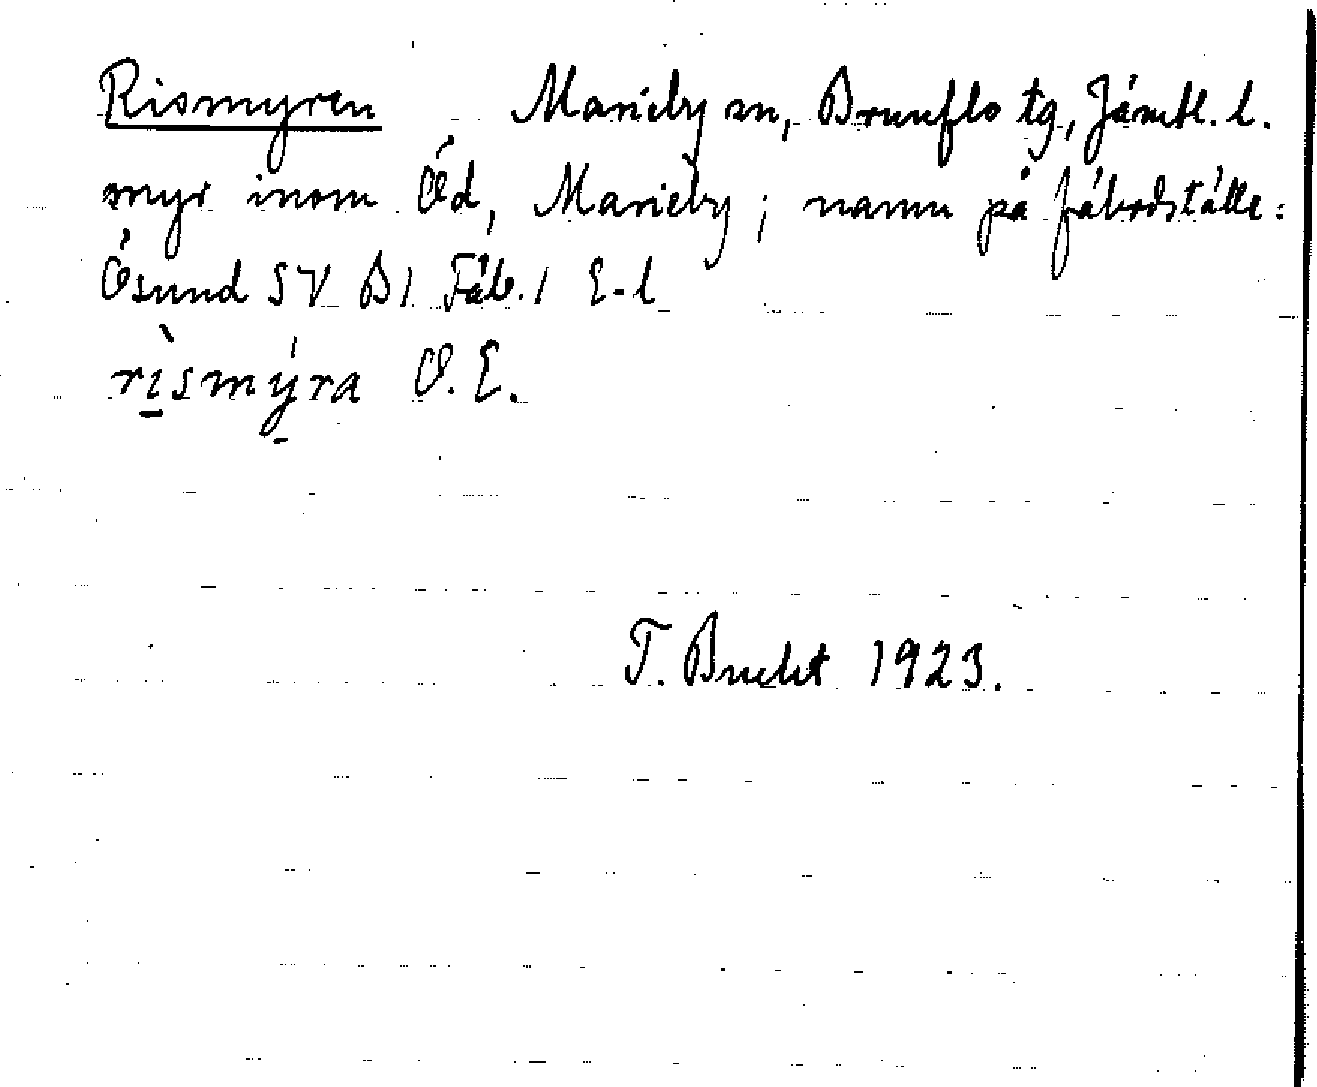 Rismyren Marieby sn, Brunflo tg, Jämtl. l.
myr inom Öd, Marieby; namn på fäbodställe:
Ösund SV B1 Fäb.1 E-l
rìsmýra O.E.
T. Bucht 1923.